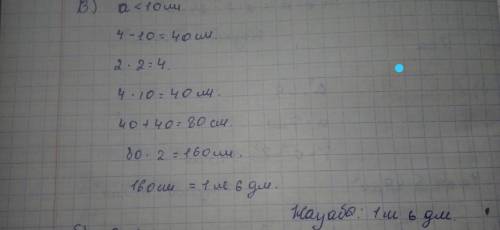 В) а < 10 см.
4 - 10 = 40 см.
2 · 2 = 4.
4 · 10 = 40 см.
40 + 40 = 80 см.
80 · 2 = 160 см.
160 см = 1 м 6 дм.
Жауабы: 1 м 6 дм.